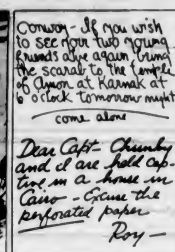 Conway - If you wish
to see your two young
friends alive again bring
the scarab to the temple
of Amon at Karnak at
6 o'clock tomorrow night
come alone
Dear Capt - Chumby
and I are held cap-
tive in a house in
Cairo - Excuse the
perforated paper
Roy -